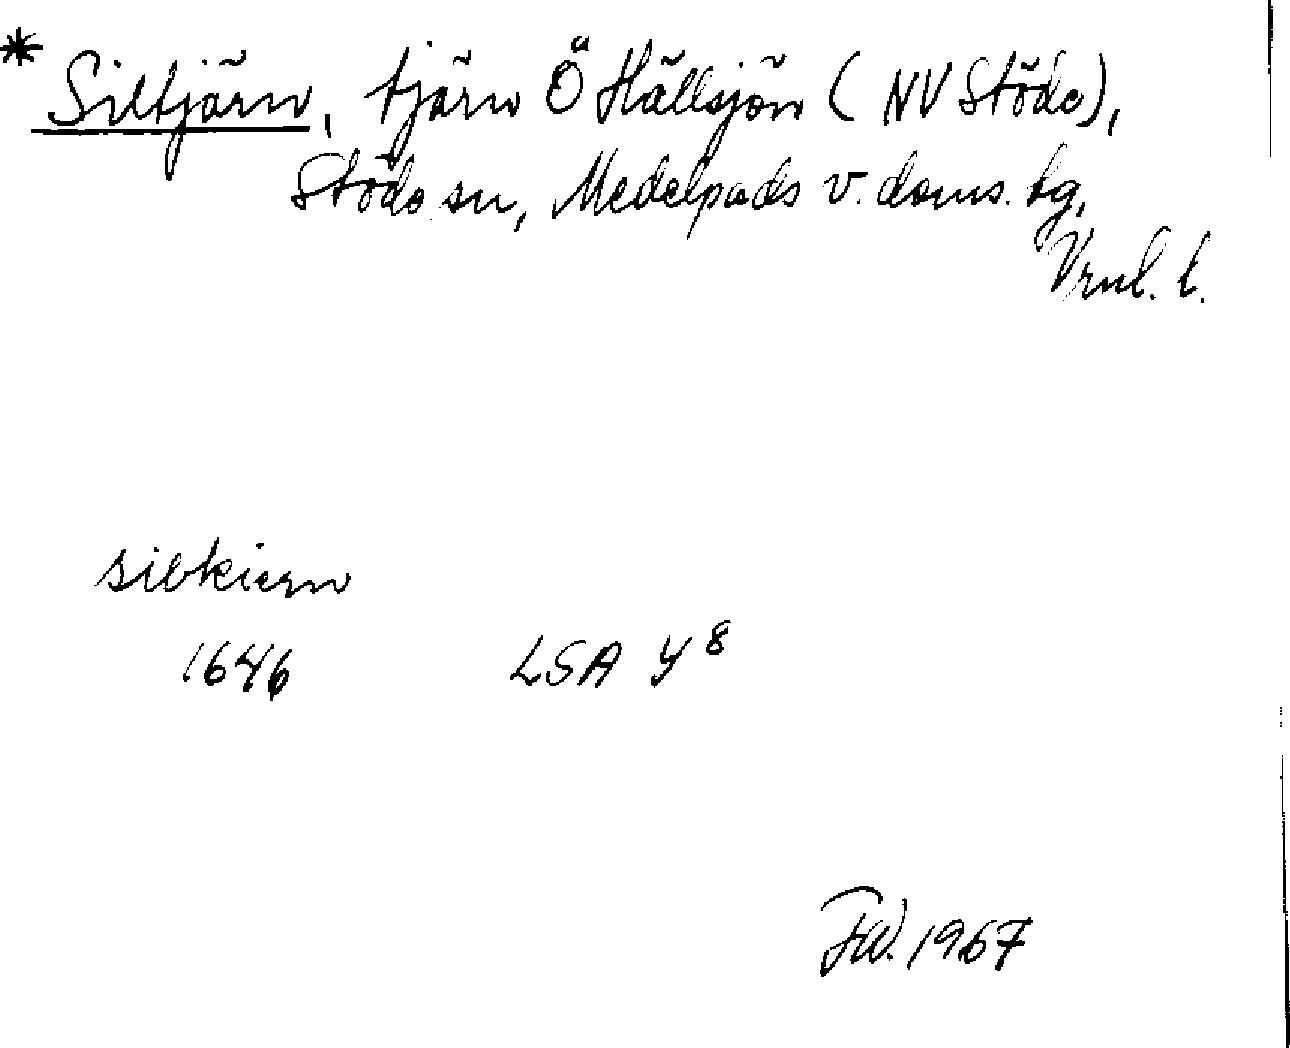 * Siltjärn, tjärn Ö Hällsjön (NV Stöde),
Stöde sn, Medelpads v. doms. tg,
Vrnl. l.
silkiern
1646 LSA Y 8
FW. 1967